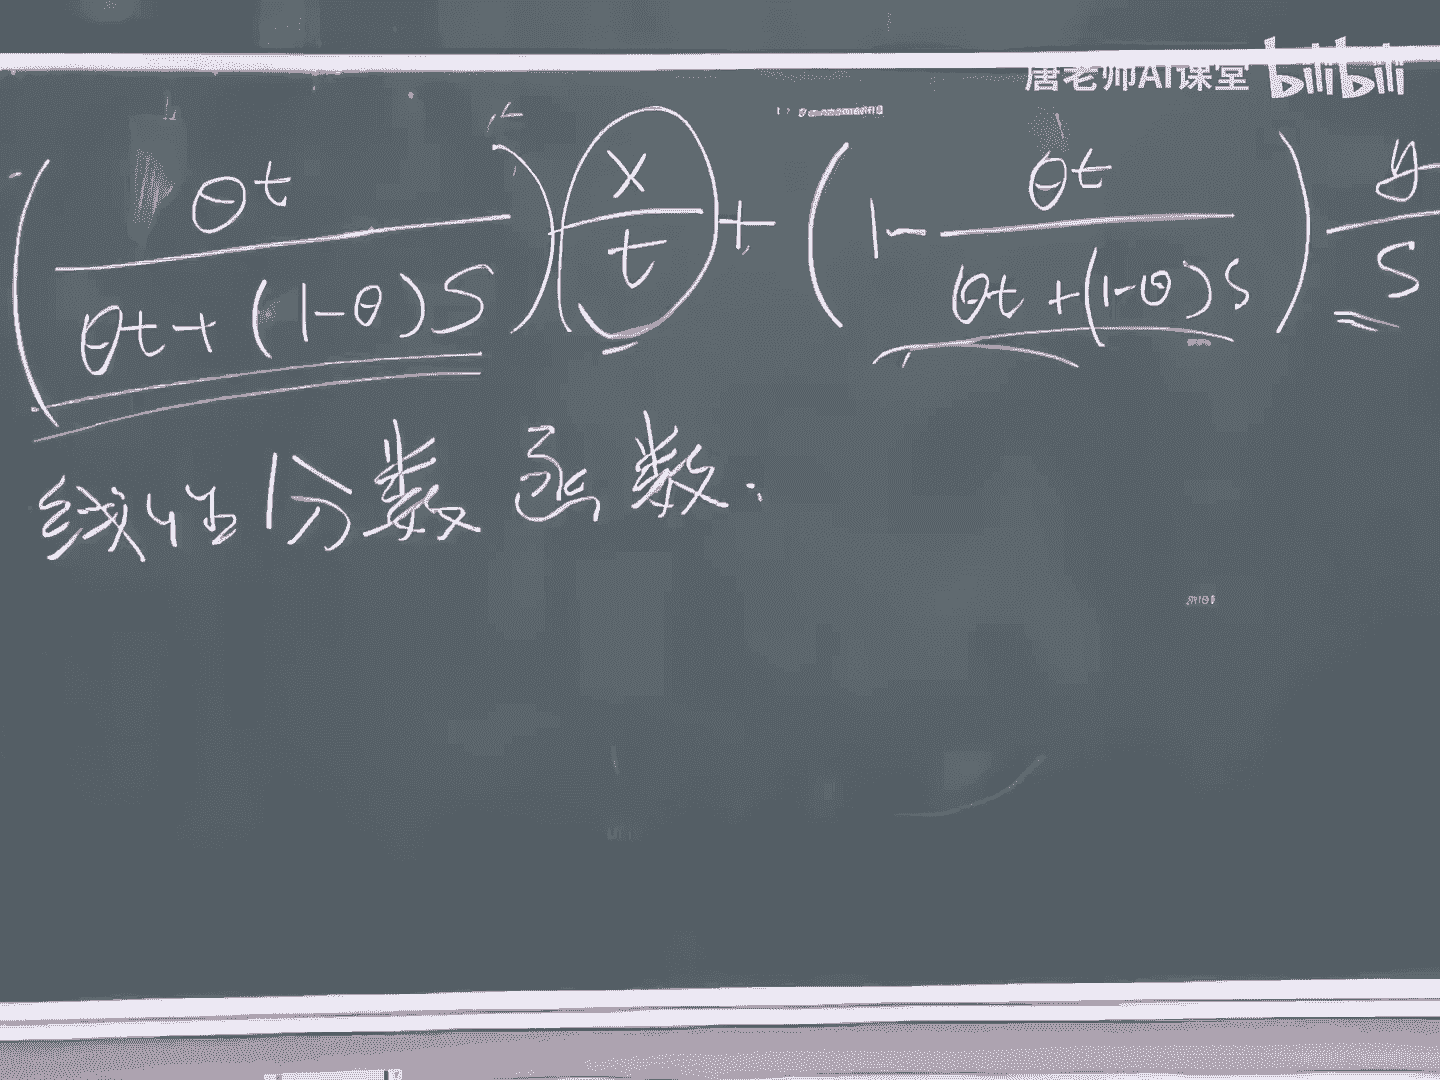 唐老师AI课堂 bilibili
(θt / (θt+(1-θ)S)) (x/t) + (1- θt / (θt+(1-θ)S)) y/S
线性分数函数.